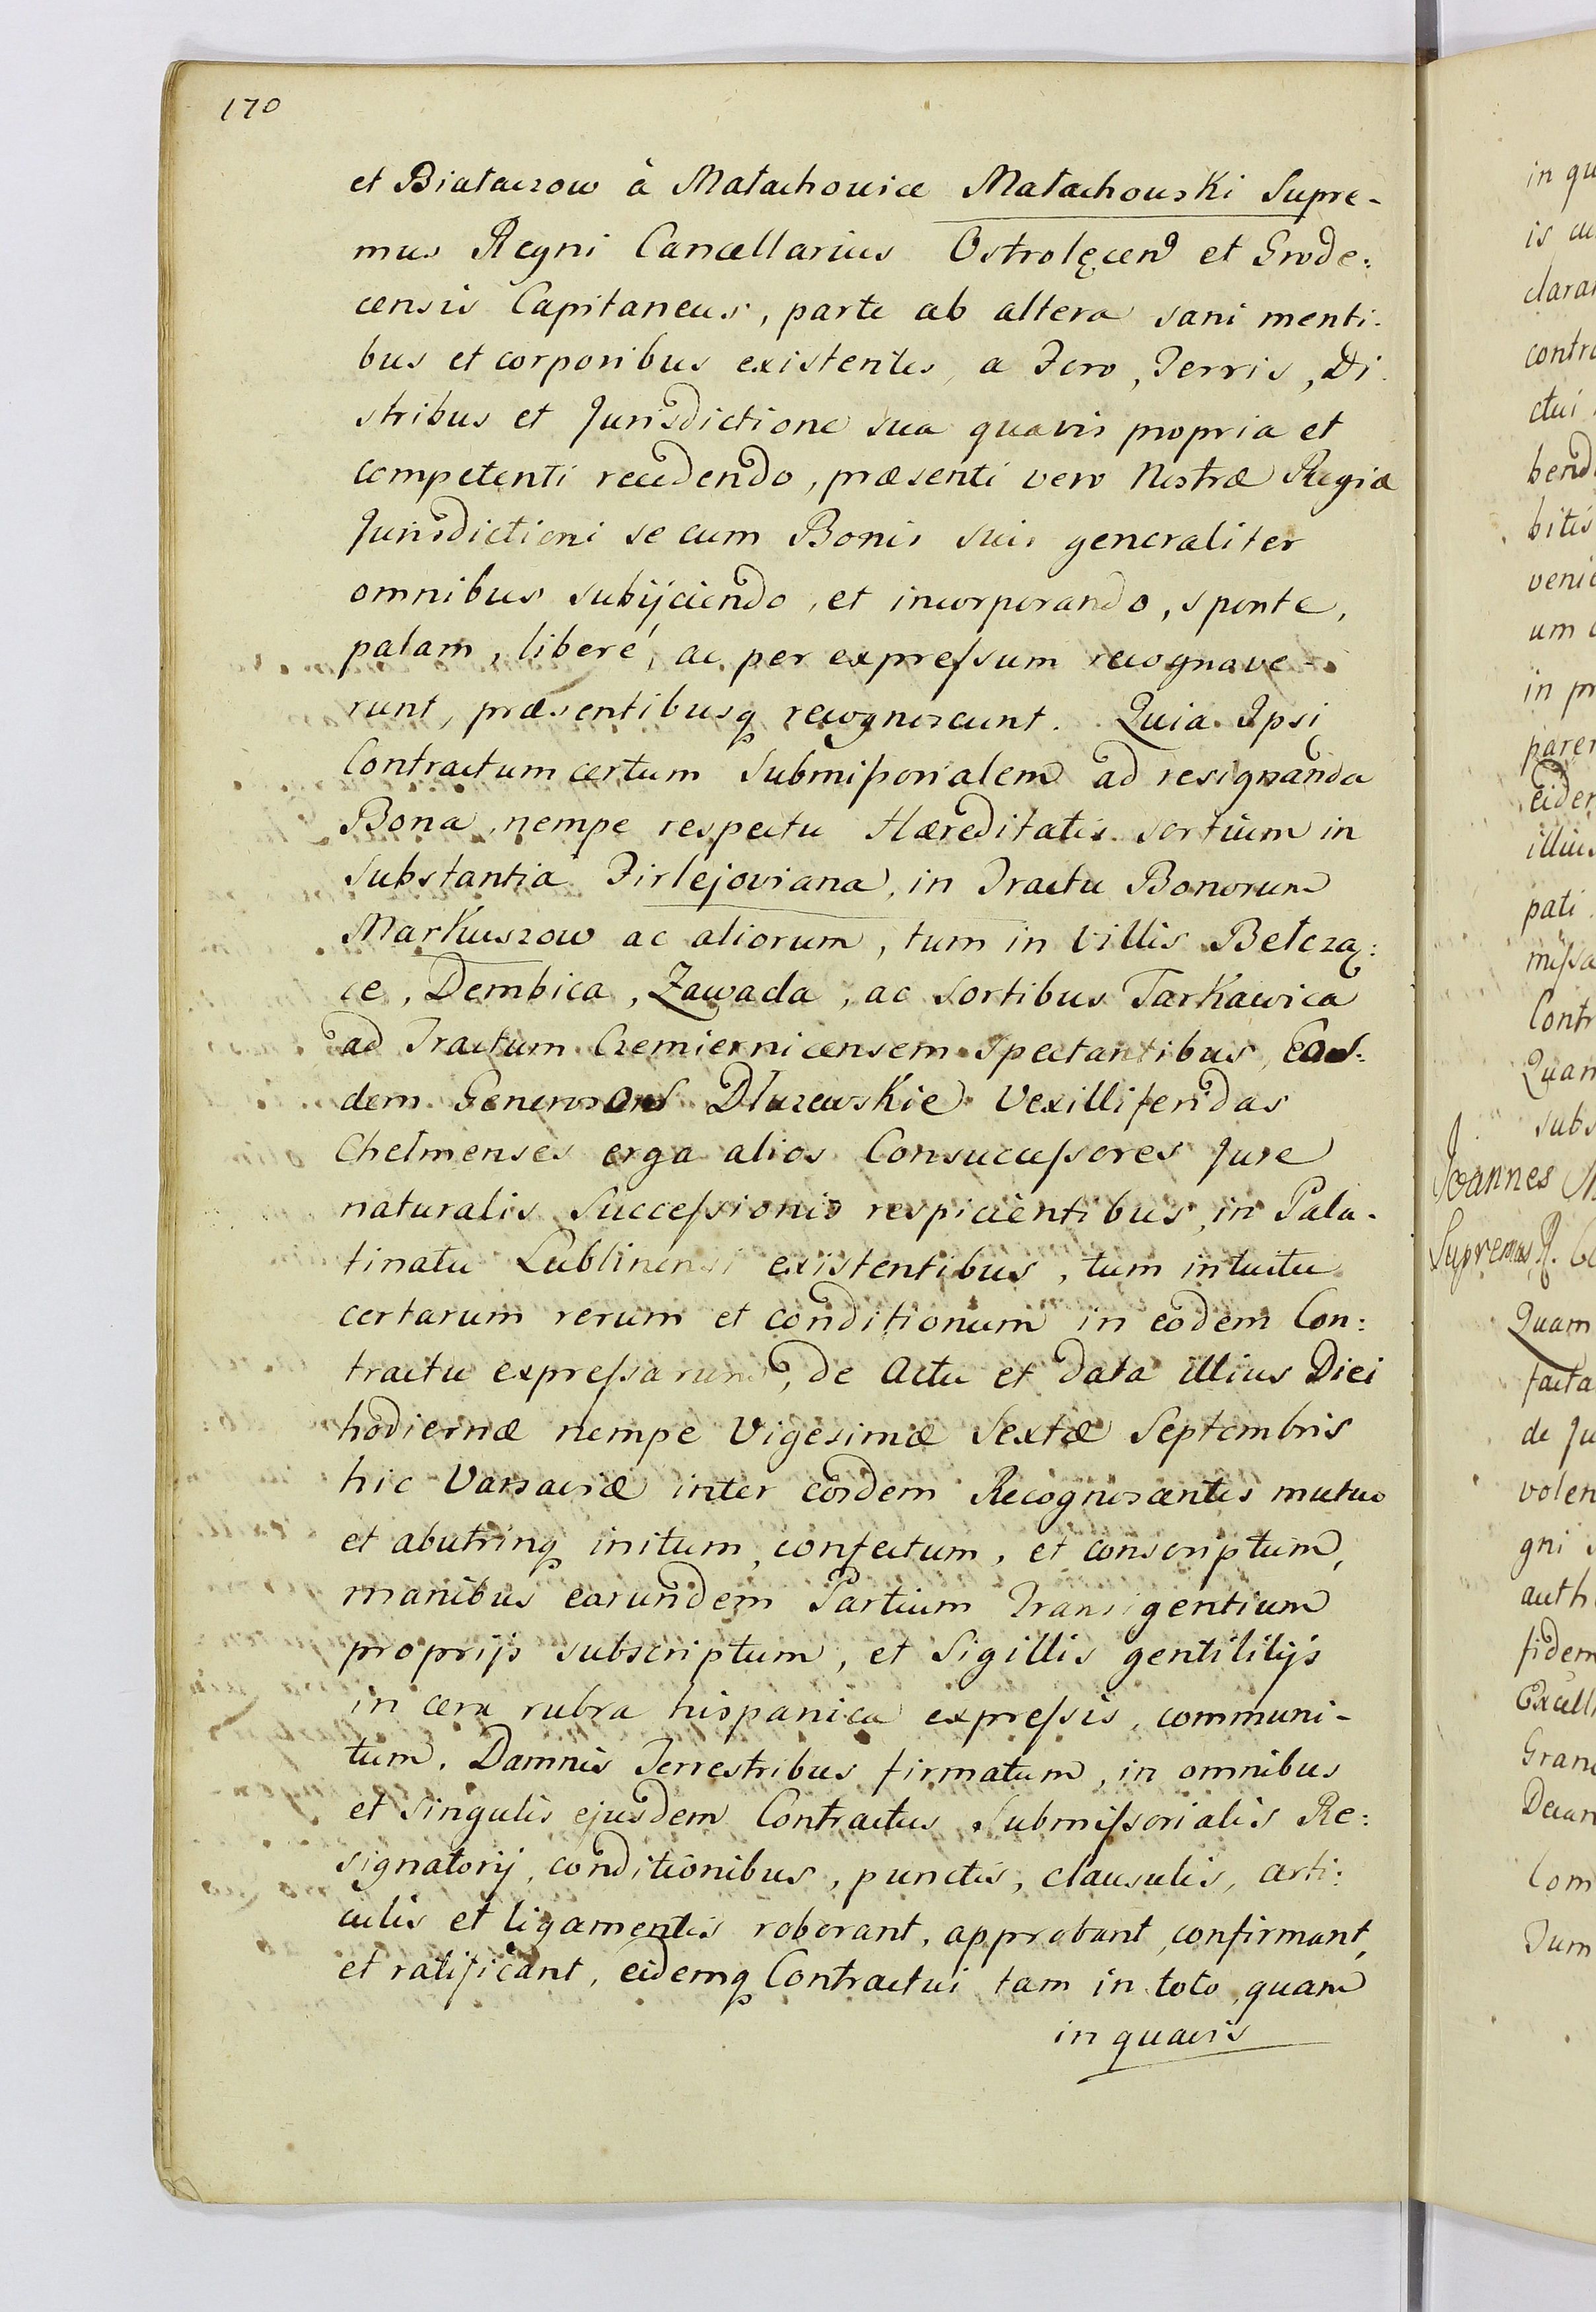 170
et Białaczow à Małachowice Małachowski Supre-
mus Regni Cancellarius Ostrolęcen et Grode:
censis Capitaneus, parte ab altera sani menti-
bus et corporibus existentes, a Foro, Terris, Di-
stribus et Jurisdictione sua quavis propria et
competenti recedendo, præsenti vero Nostræ Regiæ
Jurisdictioni se cum Bonis suis generaliter
omnibus subijciendo, et incorporando, sponte,
palam, liberé, ac per expreſsum recognove-
runt, præsentibusq recognoscunt. Quia Ipsi
Contractum certum Submiſsorialem ad resignanda
Bona, nempe respectu Hæreditatis sortium in
Substantia Firlejoviana, in Tractu Bonorum
Markuszow ac aliorum, tum in Villis Bełczą:
ce, Dembica, Zawada, ac Sortibus Tarkawica
ad Tractum Czemiernicensem spectantibus, Eas:
dem Generosas Dłuzewskie Vexilliferidas
Chełmenses erga alios Consucceſsores Jure
naturalis Succeſsionis respicientibus, in Pala-
tinatu Lublinensi existentibus, tum intuitu
certarum rerum et conditionum in eodem Con:
tractu expreſsarum, de Actu et data illius Diei
hodiernæ nempe Vigesimæ Sextæ Septembris
hic Varsaviæ inter eosdem Recognoscentes mutuo
et abutrinq initum, confectum, et conscriptum,
manibus earundem Partium Transigentium
proprijs subscriptum, et Sigillis gentilitijs
in cera rubra hispanica expreſsis, communi-
tum. Damnis Terrestribus firmatum, in omnibus
et singulis ejusdem Contractus Submiſsorialis Re:
signatorij, conditionibus, punctis, clausulis, arti:
culis et ligamentis roborant, approbant, confirmant,
et ratificant, eidemq Contractui tam in toto, quam
in quavis
in qu
is
claran
contra
ctui
bend
bitis
venie
um
in pr
paren
eiden
illius
pati
miſsa
Contr
Quan
subs
Joannes
Supremus R.
Quam
facta
de Ju
volen
gni
auth
fidem
Excell
Gran
Decan
Com
Dum